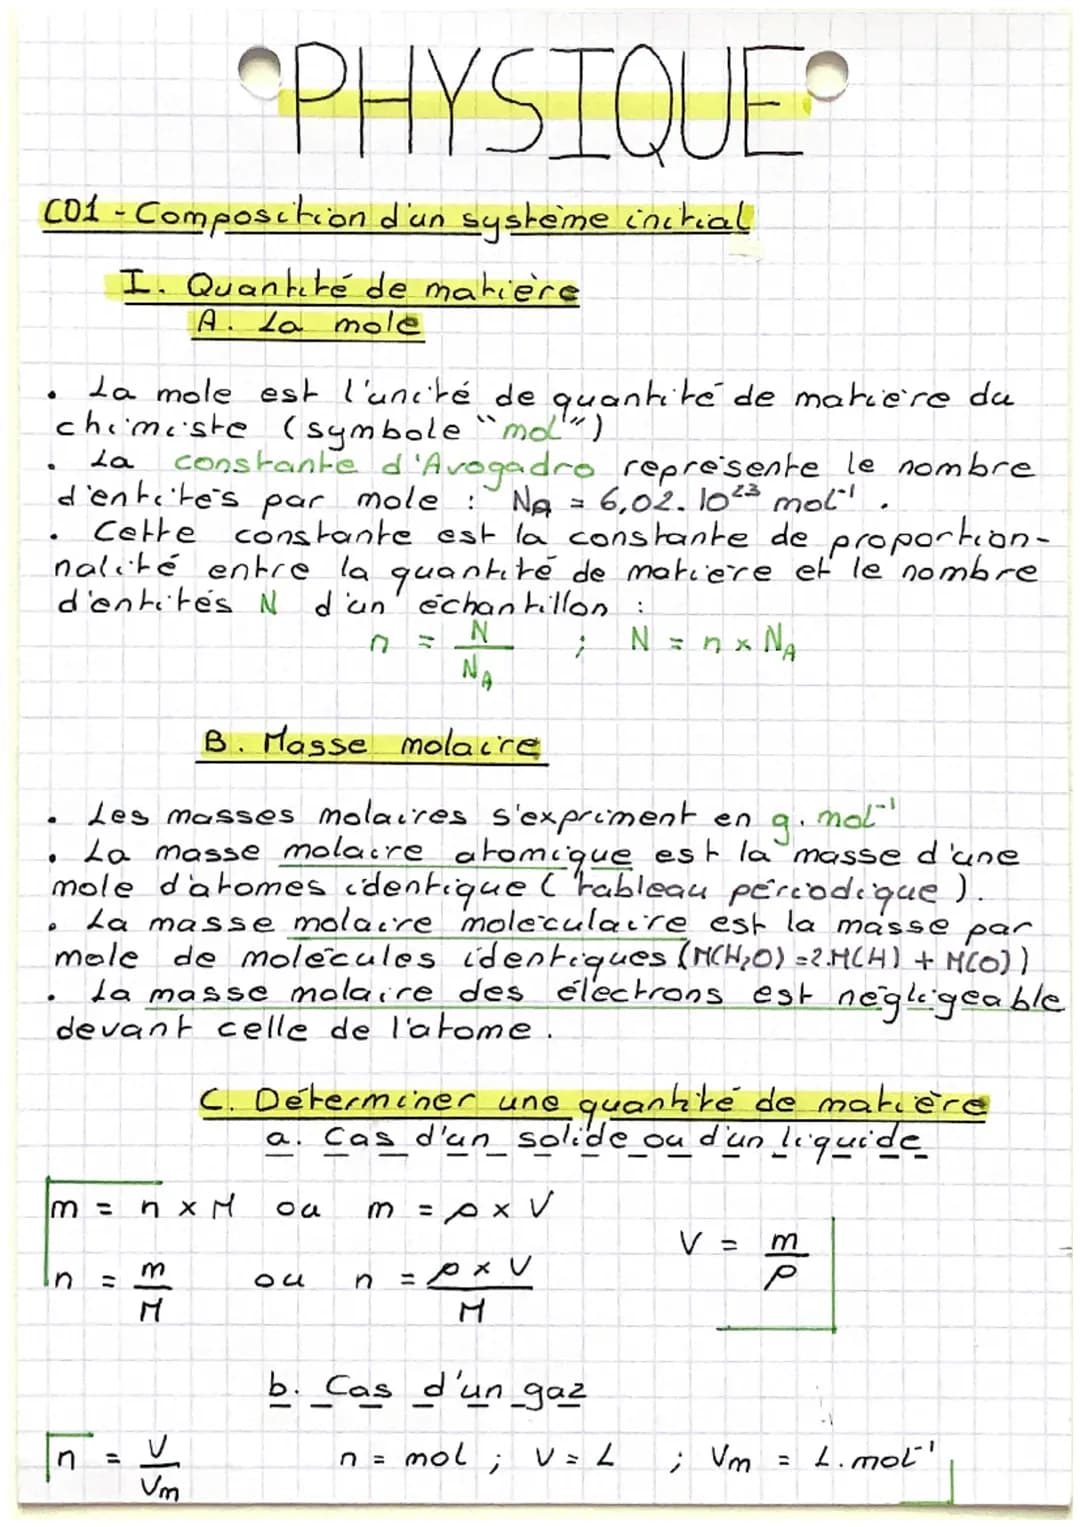 PHYSIQUE
C01 - Composition d'un système initial
I. Quantité de matière
A. La mole
• La mole est l'unité de quantité de matière du
chimiste (symbole "mol")
• La constante d'Avogadro représente le nombre
d'entités par mole : NA = 6,02.10²³ mol⁻¹.
• Cette constante est la constante de proportion-
nalité entre la quantité de matière et le nombre
d'entités N d'un échantillon :
n = N / NA ; N = n x NA
B. Masse molaire
• Les masses molaires s'expriment en g.mol⁻¹
• La masse molaire atomique est la masse d'une
mole d'atomes identique (tableau périodique).
• La masse molaire moléculaire est la masse par
mole de molécules identiques (M(H₂O) = 2.M(H) + M(O))
• La masse molaire des électrons est négligeable
devant celle de l'atome.
C. Déterminer une quantité de matière
a. Cas d'un solide ou d'un liquide
m = n x M ou m = ρ x V
V = m / ρ
n = m / M ou n = ρ x V / M
b. Cas d'un gaz
n = V / Vm n = mol ; V = L ; Vm = L.mol⁻¹